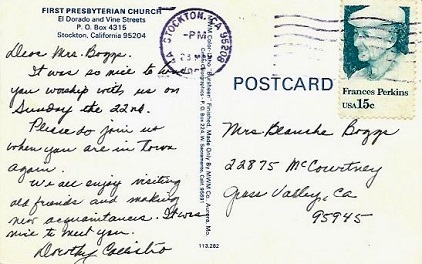 FIRST PRESBYTERIAN CHURCH
El Dorado and Vine Streets
P. O. Box 4315
Stockton, California 95204
Dear Mrs. Boggs.
It was so nice to
you worship with us on
Sunday the 22nd.
Please do join us
when you are in town
again.
We all enjoy visiting
old friends and making
new acquaintances. It was
nice to meet you.
Dorothy
113,282
STOCKTON, CA 95208
PM
POSTCARD
Frances Perkins
USA 15c
Mrs. Blanche Boggs
22875 McCourtney
Grass Valley, Ca
95945